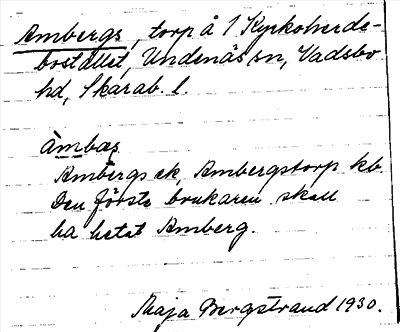 Ambergs, torp å 1 Kyrkoherde-
bostället, Undenäs sn, Vadsbo
hd, Skarab. l.
àmbæṣ
Ambergs ek, Ambergstorp kb.
Den förste brukaren skall
ha hetat Amberg.
Maja Bergstrand 1930.